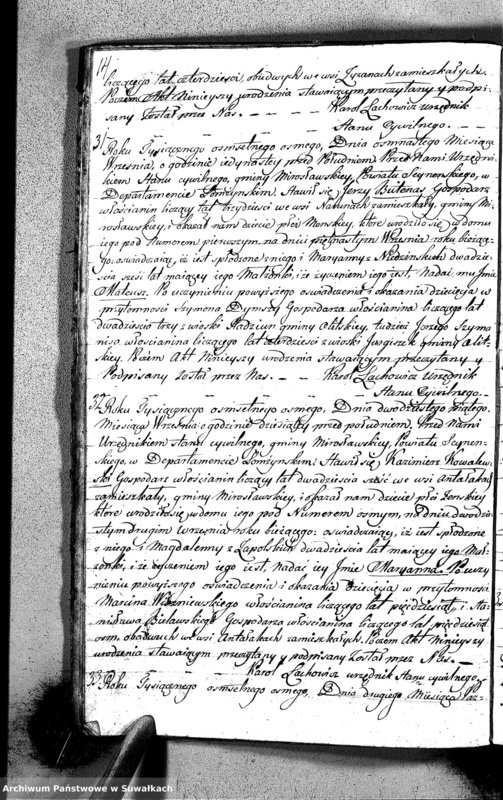 14
liczącego lat czterdzieści, obudwych we wsi Zyzanach zamieszkałych.
Poczem Akt Ninieyszy urodzenia stawaiącym przeczytany y podpi-
sany Został przez Nas. — Karol Lachowicz urzędnik
Stanu Cywilnego. —
31 Roku Tysiącznego osmsetnego osmego, Dnia osmnastego Miesiąca
Września, o godzinie iedynastey przed Południem. Przed Nami Urzędni-
kiem Stanu cywilnego, gminy Mirosławskiey, Powiatu Seynenskiego, w
Departamencie Łomżynskim. Stawił się Jerzy Butenas Gospodarz
włościanin liczący lat trzydzieści we wsi Narunach zamieszkały, gminy Mi-
rosławskiey, i okazał nam dziecie płci Menskiey, ktore urodziło się w domu
iego pod Numerem pierwszym na dniu piętnastym Września roku bieżą-
go: oswiadczaiąc, iż iest spłodzone z niego i Maryanny z Nedzinskich dwadzie-
scia sześć lat maiącey iego Małżonki, i że życzeniem iego iest, Nadać mu Jmie
Mateusz. Po uczynieniu powyższego oswiadczenia i okazania dziecięcia w
przytomności Szymona Dymszy Gospodarza włościanina liczącego lat
dwadzieścia trzy z wioski Radziun gminy Olitskiey, tudzież Jozefa Szyma-
nisa, włościanina liczącego lat czterdzieści z wioski Jurgiszk gminy Olit-
skiey. Poczem Akt Ninieyszy urodzenia stawaiącym przeczytany y
Podpisany został przez Nas. — Karol Lachowicz Urzędnik
Stanu Cywilnego. —
32 Roku Tysiącznego osmsetnego osmego, Dnia dwodziestego piątego,
Miesiąca Września o godzinie dziesiątey przed południem, Przed Nami
Urzędnikiem stanu cywilnego, gminy Mirosławskiey, Powiatu Seynen-
skiego, w Departamencie Łomżynskim: Stawił się Kazimierz Kowalew-
ski Gospodarz włościanin liczący lat dwadzieścia sześć we wsi Antałakach
zamieszkały, gminy Mirosławskiey, i okazał nam dziecie płci Zenskiey
ktore urodziło się w domu iego pod Numerem osmym, na Dniu dwodzie-
stym drugim Września roku bieżącego: oswiadczaiąc, iż iest spłodzone
z niego i Magdaleny z Łapolskich dwadzieścia lat maiącey iego Mał-
żonki, i że życzeniem iego iest, nadać iey Jmie Maryanna. Po uczy-
nieniu powyższego oswiadczenia i okazania dziecięcia w przytomności
Marcina Wiszniewskiego włościanina liczącego lat pięćdziesiąt, i Sta-
nisława Bielawskiego Gospodarza włościanina liczącego lat pięćdziesiąt
osm, obudwuch we wsi Antałakach zamieszkałych. Poczem Akt Ninieyszy
urodzenia stawaiącym przeczytany y podpisany Został przez Nas. —
Karol Lachowicz urzędnik Stanu cywilnego
33 Roku Tysiącznego osmsetnego osmego, Dnia drugiego Miesiąca Paz-
Archiwum Państwowe w Suwałkach